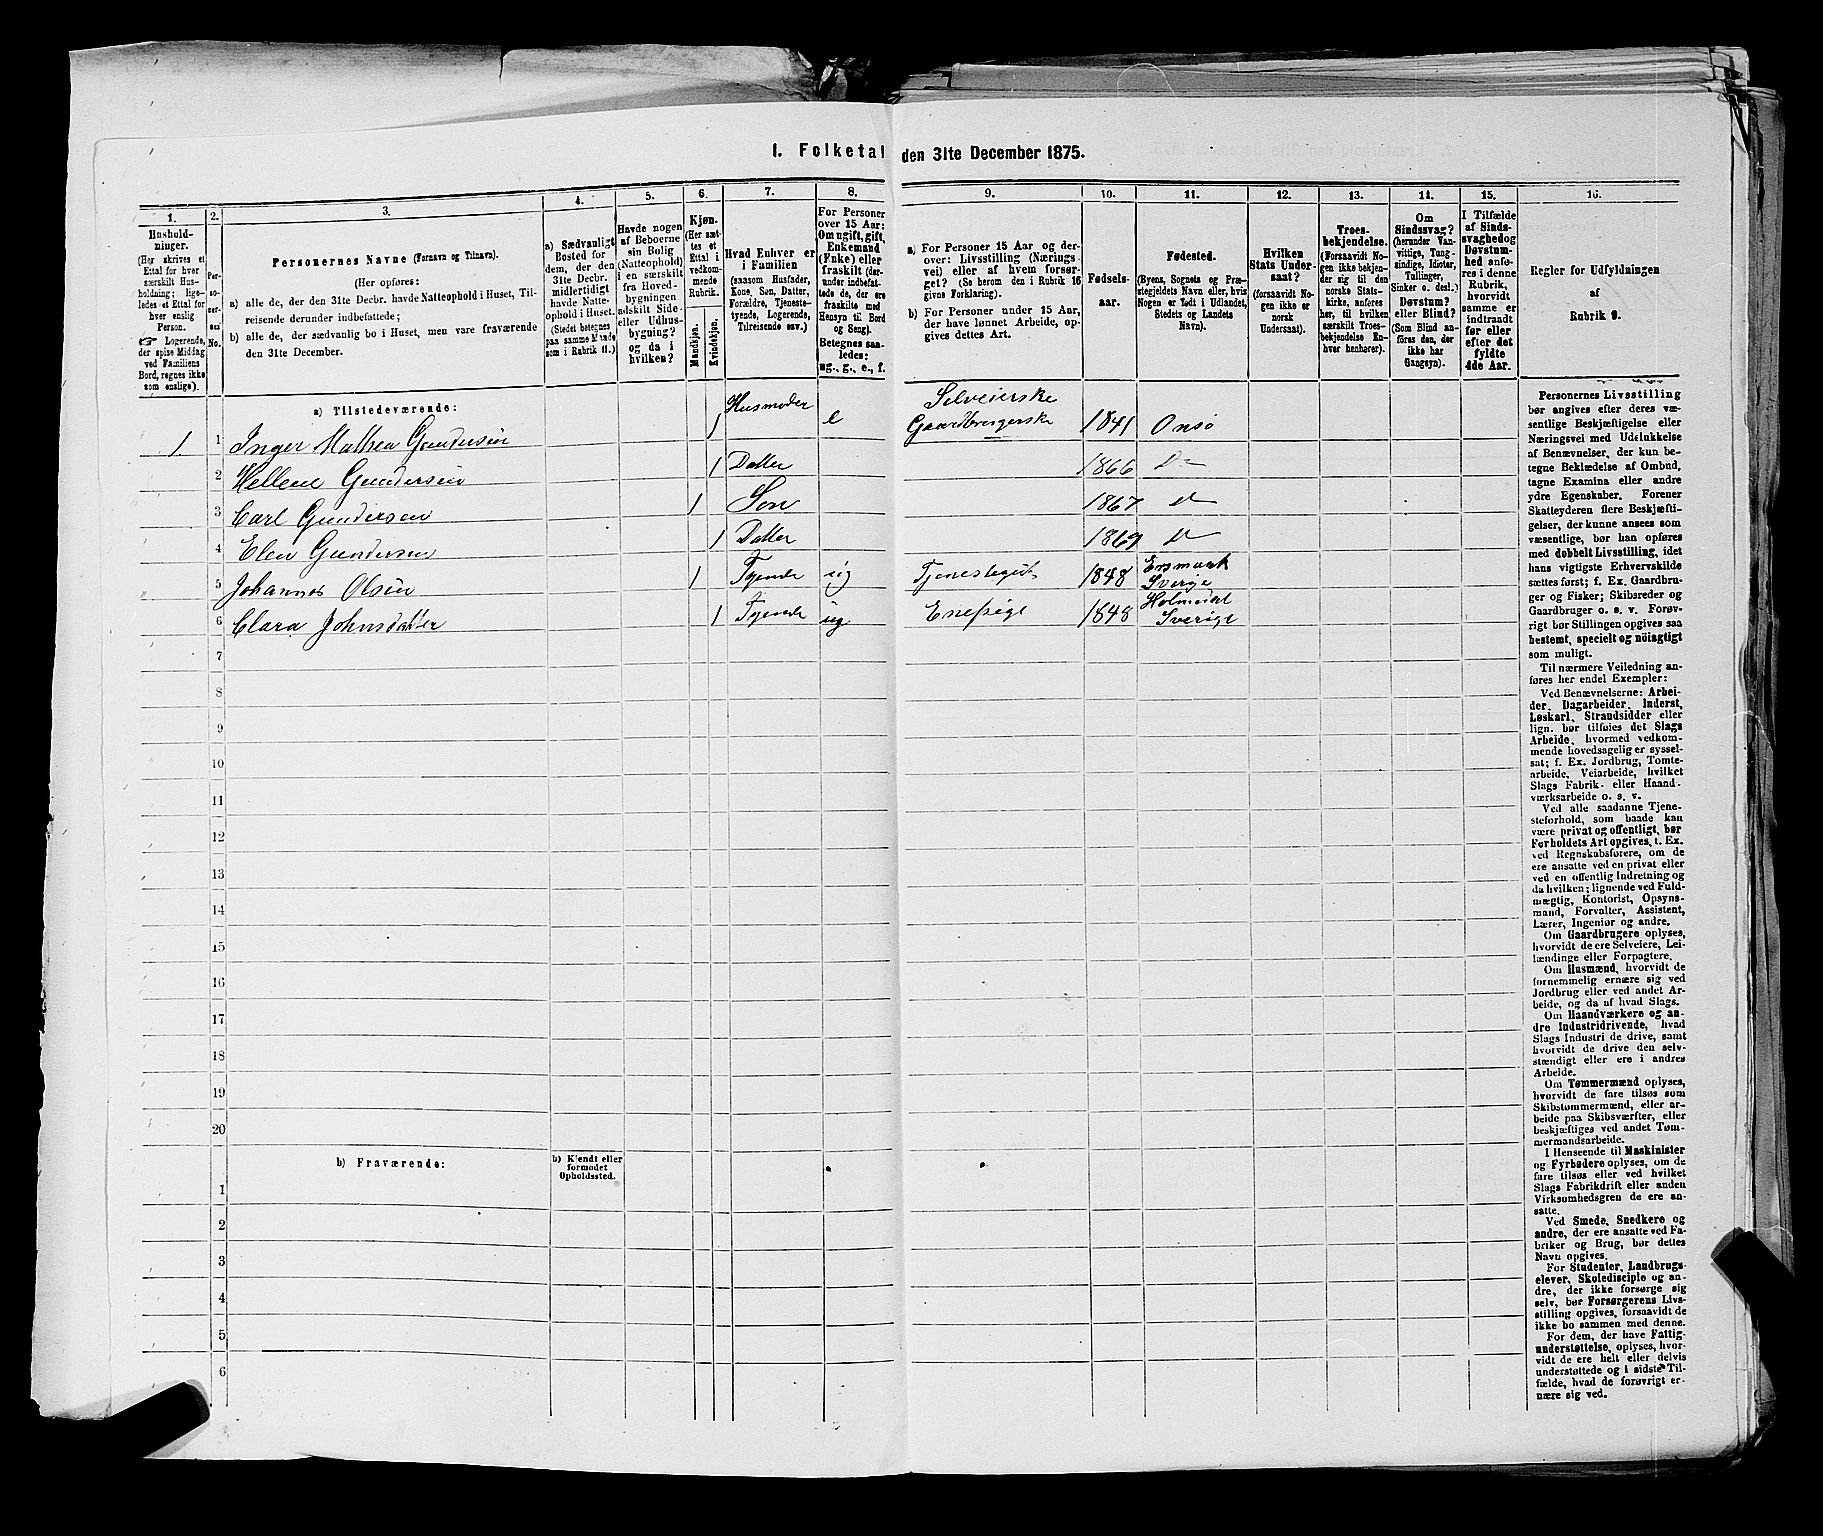 1. Folketal den 31te December 1875.
1.
Hushold-
ninger.
(Her skrives et
Ettal for hver
særskilt Hus-
holdning; lige-
ledes et Ettal for
hver enslig
Person.
☞ Logerende,
der spise Middag
ved Familiens
Bord, regnes ikke
som enslige).
2.
Per-
so-
nernes
No.
3.
Personernes Navne (Fornavn og Tilnavn).
(Her opføres:
a) alle de, der den 31te Decbr. havde Natteophold i Huset, Til-
reisende derunder indbefattede;
b) alle de, der sædvanlig bo i Huset, men vare fraværende
den 31te December.
4.
a) Sædvanligt
Bosted for
dem, der den
31te Decbr.
midlertidigt
havde Natte-
ophold i Huset.
(Stedet betegnes
paa samme Maade
som i Rubrik 11.)
5.
Havde nogen
af Beboerne
sin Bolig
(Natteophold)
i en særskilt
fra Hoved-
bygningen
adskilt Side-
eller Udhus-
bygning?
og da i
hvilken?
6.
Kjøn.
(Her sæt-
tes et
Ettal i
vedkom-
mende
Rubrik.
Mandkjøn.
Kvindekjøn.
7.
Hvad Enhver er
i Familien
(saasom Husfader,
Kone, Søn, Datter,
Forældre, Tjeneste-
tyende, Logerende,
Tilreisende osv.)
8.
For Personer
over 15 Aar:
Om ugift, gift,
Enkemand
(Enke) eller
fraskilt (der-
under indbefat-
tede de, der ere
fraskilte med
Hensyn til Bord
og Seng).
Betegnes saa-
ledes:
ug., g., e., f.
9.
a) For Personer 15 Aar og der-
over: Livsstilling (Nærings-
vei) eller af hvem forsør-
get? (Se herom den i Rubrik 16
givne Forklaring).
b) For Personer under 15 Aar,
der have lønnet Arbeide, op-
gives dettes Art.
10.
Fødsels-
aar.
11.
Fødested.
(Byens, Sognets og Præ-
stegjeldets Navn eller, hvis
Nogen er født i Udlandet,
Stedets og Landets
Navn).
12.
Hvilken
Stats Under-
saat?
(forsaavidt No-
gen ikke er
norsk
Undersaat).
13.
Troes-
bekjendelse.
(Forsaavidt No-
gen ikke bekjen-
der sig til den
norske Stats-
kirke, anføres
her, til hvilken
særskilt Troes-
bekjendelse En-
hver henhører).
14.
Om
Sindssvag?
(herunder Van-
vittige, Tung-
sindige, Idioter,
Tullinger,
Sinker o. desl.)
Døvstum?
eller Blind?
(Som Blind an-
føres den, der
ikke har
Gangsyn).
15.
I Tilfælde
af Sinds-
svaghed og
Døvstum-
hed anfø-
res i denne
Rubrik,
hvorvidt
samme er
indtraadt
før eller
efter det
fyldte
4de Aar.
16.
Regler for Udfyldningen
af
Rubrik 9.
a) Tilstedeværende:
1 1 Inger Mathea Gundersen 1 Husmoder e Selveierske Gaardbrugerske 1841 Onsø
2 Hellene Gundersen 1 Datter 1866 Do
3 Carl Gundersen 1 Søn 1867 do
4 Elen Gundersen 1 Datter 1869 do
5 Johannes Olsen 1 Tyende ug Tjenestegut 1848 Sverige
6 Clara Johnsdatter 1 Tyende ug 1848 Holmedal Sverige
7
8
9
10
11
12
13
14
15
16
17
18
19
20
b) Fraværende:
b) Kjendt eller
formodet
Opholdssted.
1
2
3
4
5
6
Personernes Livsstilling
bør angives efter deres væ-
sentlige Beskjæftigelse eller
Næringsvei med Udelukkelse
af Benævnelser, der kun be-
tegne Beklædelse af Ombud,
tagne Examina eller andre
ydre Egenskaber. Forener
Skatteyderen flere Beskjæfti-
gelser, der kunne ansees som
væsentlige, bør han opføres
med dobbelt Livsstilling, idet
hans vigtigste Erhvervskilde
sættes først; f. Ex. Gaardbru-
ger og Fisker; Skibsreder og
Gaardbruger o. s. v. Forøv-
rigt bør Stillingen opgives saa
bestemt, specielt og nöiagtigt
som muligt.
Til nærmere Veiledning an-
føres her endel Exempler:
Ved Benævnelserne: Arbei-
der, Dagarbeider, Inderst,
Løskarl, Strandsidder eller
lign. bør tilføies det Slags
Arbeide, hvormed vedkom-
mende hovedsagelig er syssel-
sat; f. Ex. Jordbrug, Tomte-
arbeide, Veiarbeide, hvilket
Slags Fabrik- eller Haand-
værksarbeide o. s. v.
Ved alle saadanne Tjene-
steforhold, som baade kan
være privat og offentligt, bør
Forholdets Art opgives, f. Ex.
ved Regnskabsførere, om de
ere ansatte ved en privat eller
ved en offentlig Indretning og
da hvilken; lignende ved Fuld-
mægtig, Kontorist, Opsyns-
mand, Forvalter, Assistent,
Lærer, Ingeniør og andre.
Om Gaardbrugere oplyses,
hvorvidt de ere Selveiere, Lei-
lændinge eller Forpagtere.
Om Husmænd, hvorvidt de
fornemmelig ernære sig ved
Jordbrug eller ved andet Ar-
beide, og da af hvad Slags.
Om Haandværkere og an-
dre Industridrivende, hvad
Slags Industri de drive, samt
hvorvidt de drive den selv-
stændigt eller ere i andres
Arbeide.
Om Tømmermænd oplyses,
hvorvidt de fare tilsøs som
Skibstømmermænd, eller ar-
beide paa Skibsværfter, eller
beskjæftiges ved andet Tøm-
mermandsarbeide.
I Henseende til Maskinister
og Fyrbødere oplyses, om de
fare tilsøs eller ved hvilket
Slags Fabrikdrift eller anden
Virksomhedsgren de ere an-
satte.
Ved Smede, Snedkere og
andre, der ere ansatte ved Fa-
briker og Brug, bør dettes
Navn opgives.
For Studenter, Landbrugs-
elever, Skoledisciple og an-
dre, der ikke forsørge sig
selv, bør Forsørgerens Livs-
stilling opgives, forsaavidt de
ikke bo sammen med denne.
For dem, der have Fattig-
understøttelse, oplyses, hvor-
vidt de ere helt eller delvis
understøttede og i sidste Til-
fælde, hvad de forøvrigt er-
nære sig ved.